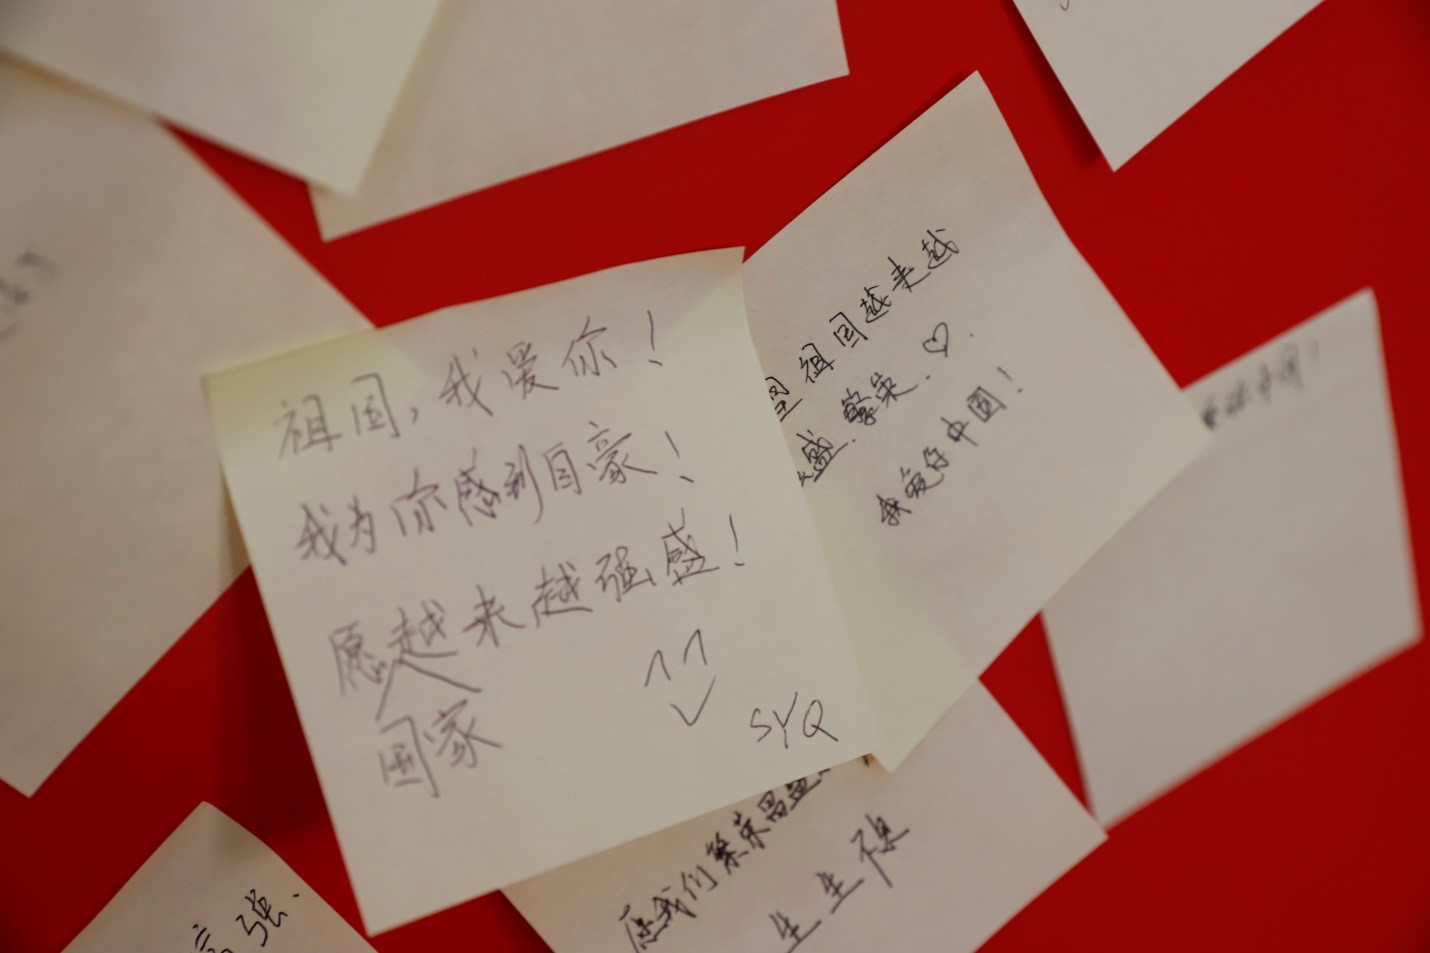 祖国，我爱你！
我为你感到自豪！
愿越来越强盛！
国家
SYQ
祖国越来越
盛．繁荣．♡．
我爱你中国！
愿我们繁荣昌盛
生生
富强．